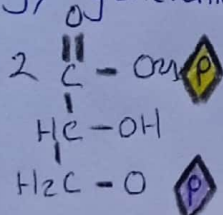 O
2 C - O P
HC - OH
H2C - O P